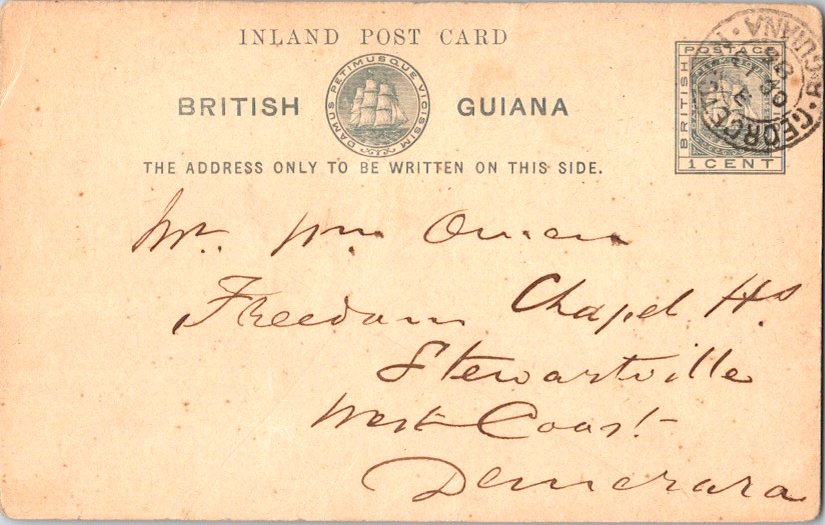 INLAND POST CARD
BRITISH GUIANA
DAMUS PETIMUSQUE VICISSIM
THE ADDRESS ONLY TO BE WRITTEN ON THIS SIDE.
BRITISH
POSTAG
1 CENT
GUIANA
Mr. Wm
Freedom Chapel Hs
Stewartville
West Coast
Demerara